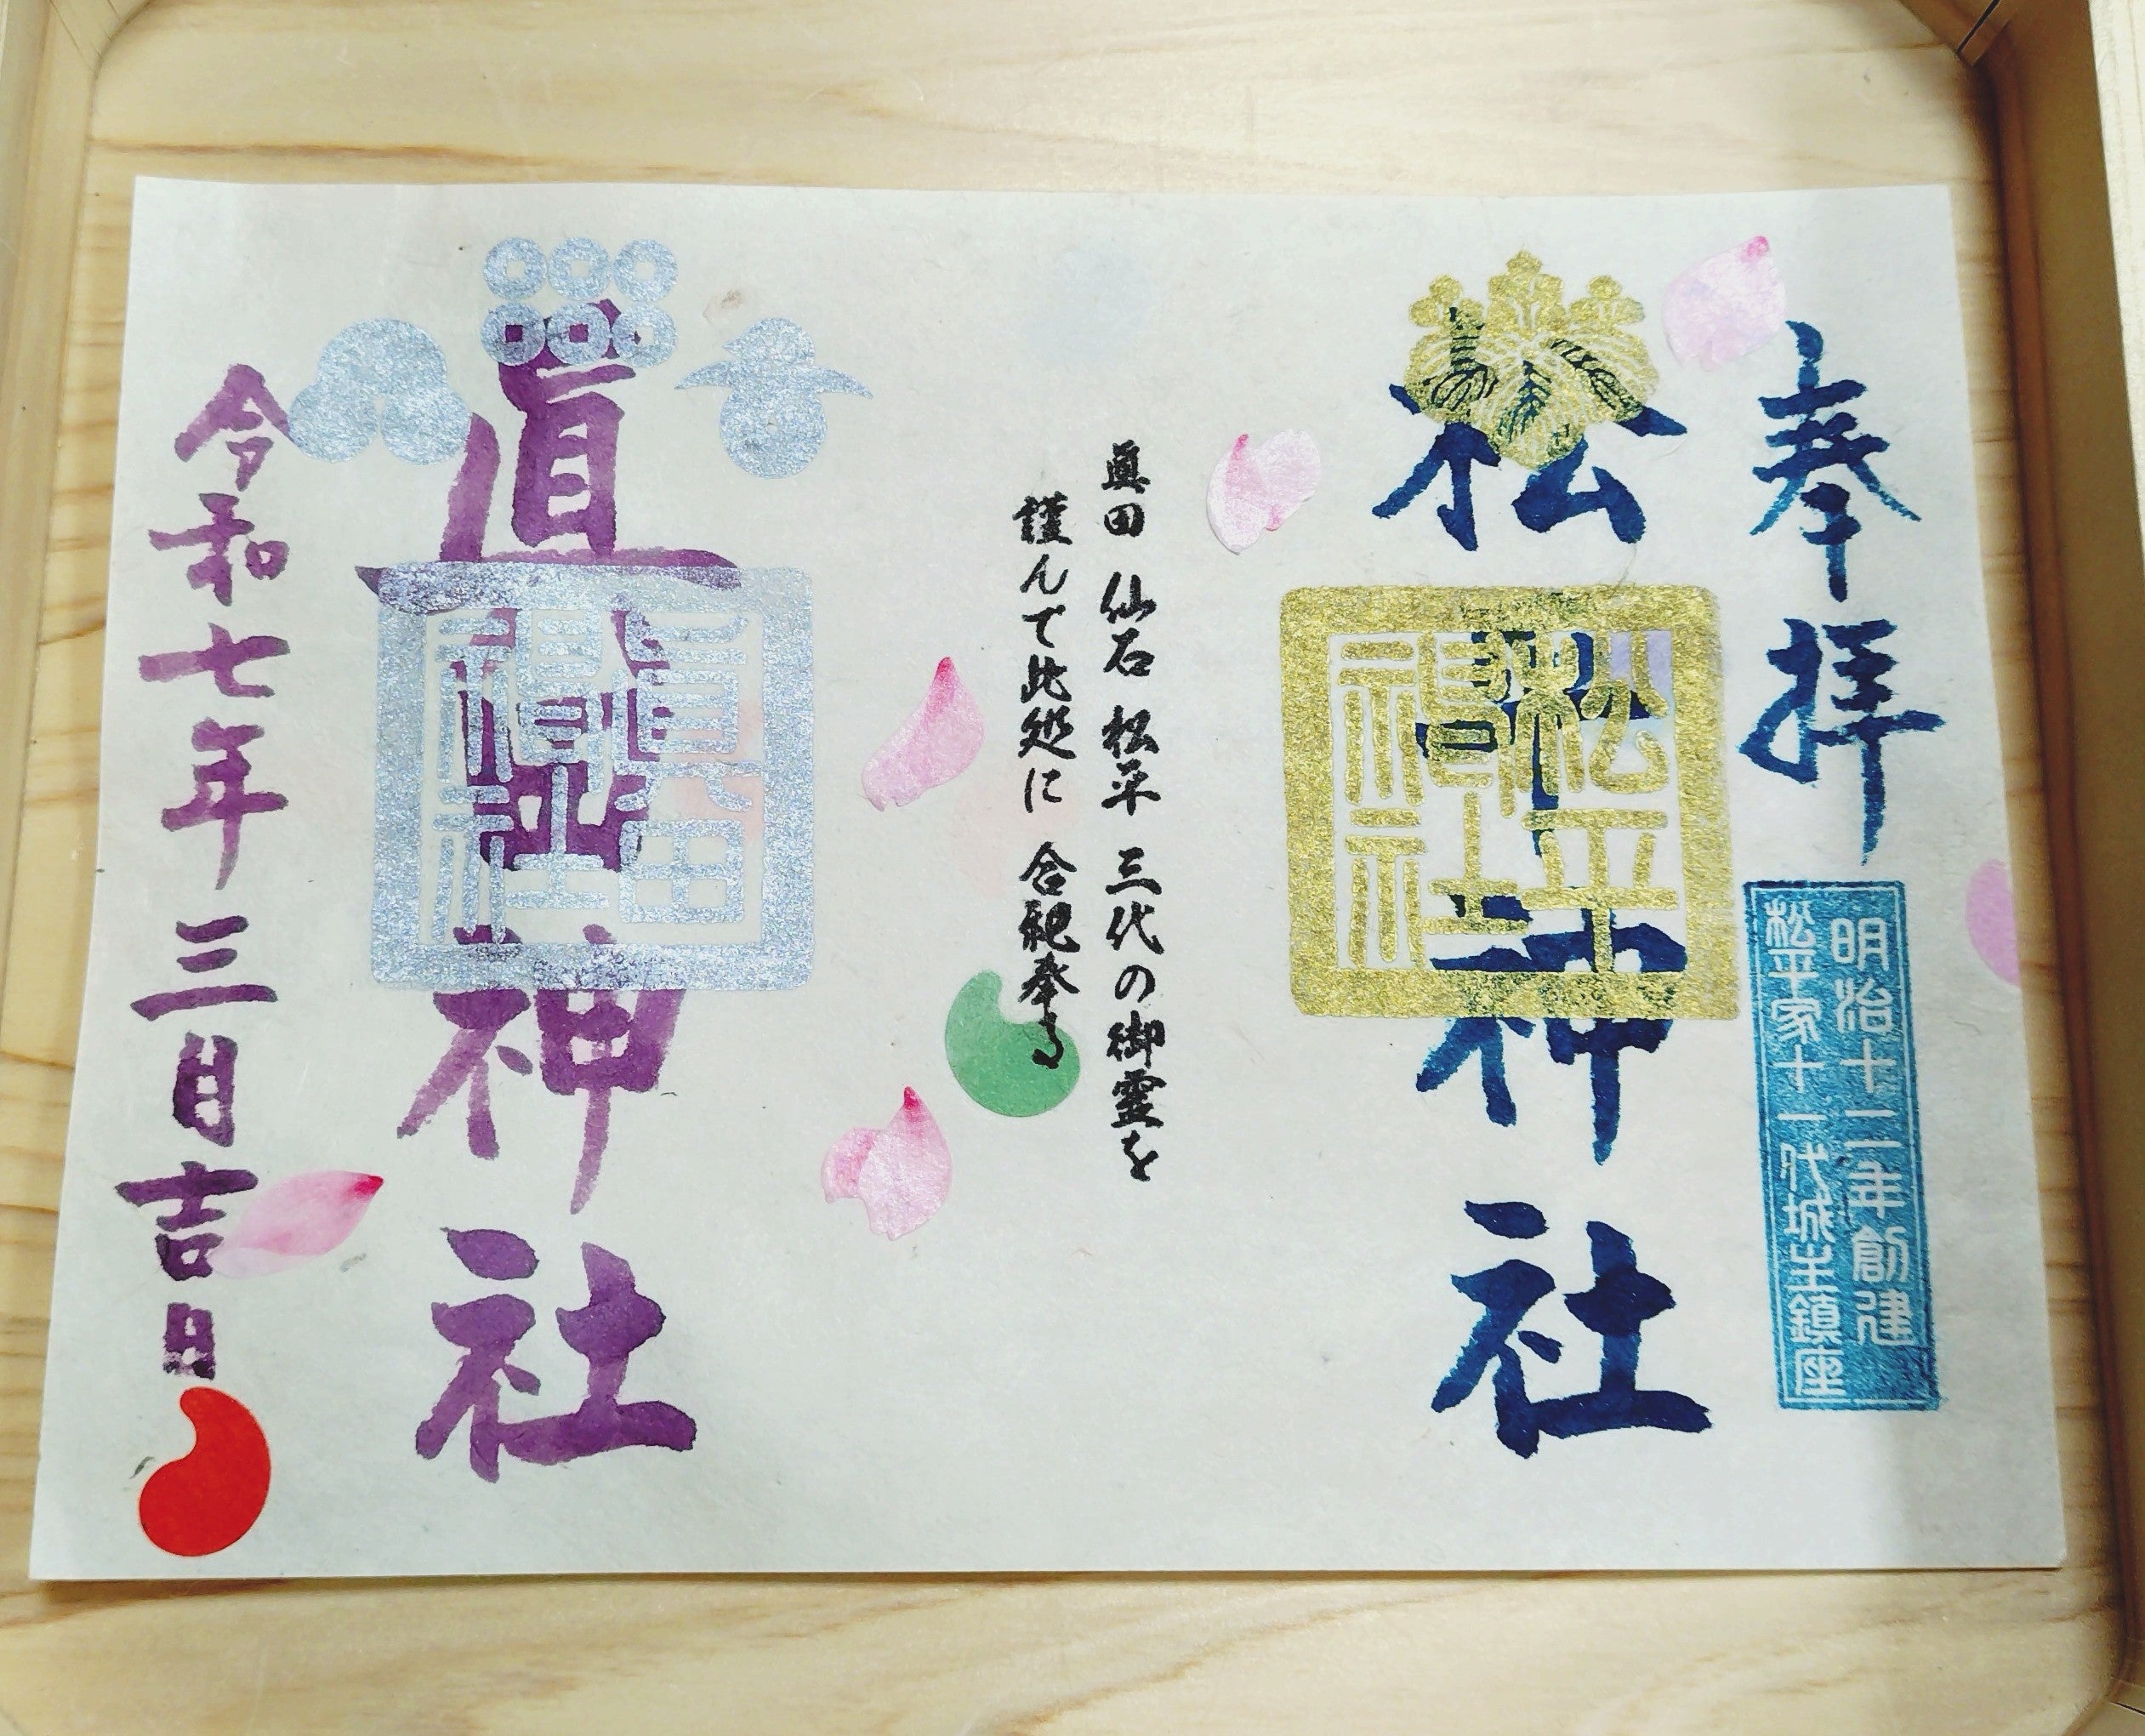 奉拝
明治十二年創建
松平家十一代城主鎮座
松平神社
松平神社
眞田 仙石 松平 三代の御霊を
謹んで此処に 合祀奉る
眞田神社
眞田神社
令和七年三月吉日